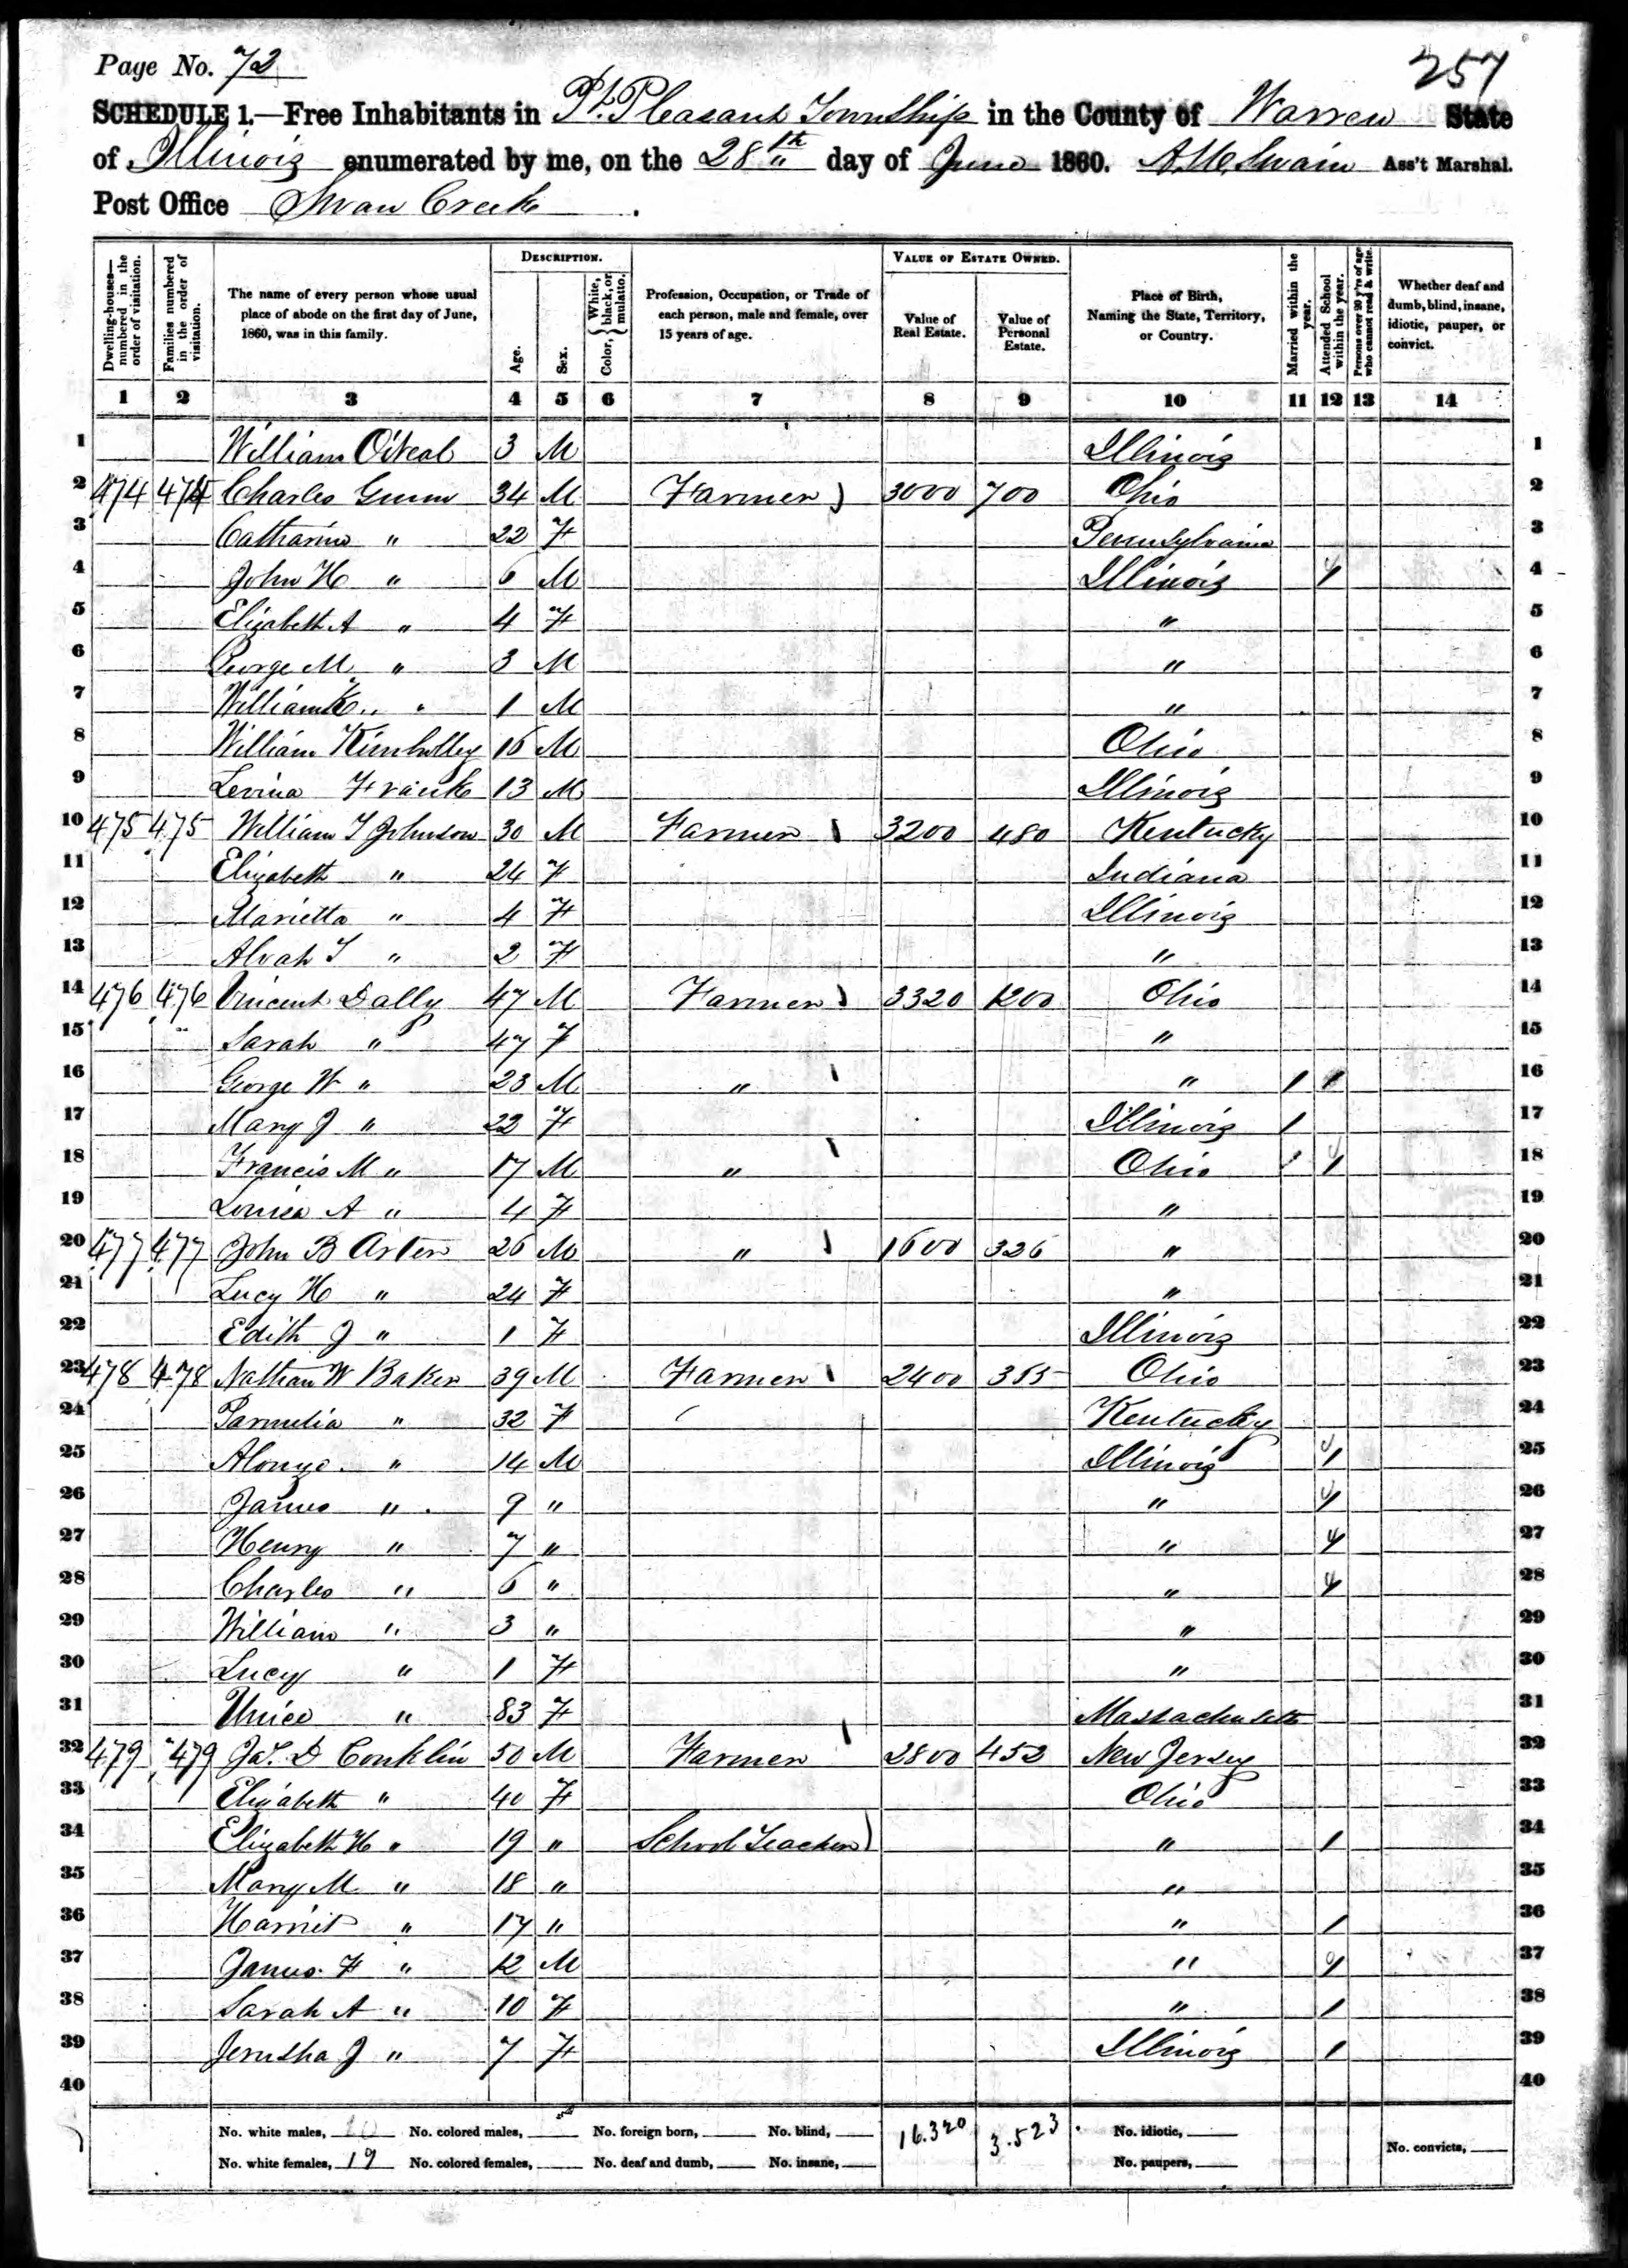 Page No. 72
257
SCHEDULE 1.—Free Inhabitants in Pt. Pleasant Township in the County of Warren State
of Illinois enumerated by me, on the 28th day of June 1860. Ass't Marshal.
Post Office Swan Creek
DESCRIPTION. VALUE OF ESTATE OWNED.
Dwelling-houses—numbered in the order of visitation.
Families numbered in the order of visitation.
The name of every person whose usual place of abode on the first day of June, 1860, was in this family.
Age.
Sex.
Color, { White, black, or mulatto.
Profession, Occupation, or Trade of each person, male and female, over 15 years of age.
Value of Real Estate.
Value of Personal Estate.
Place of Birth, Naming the State, Territory, or Country.
Married within the year.
Attended School within the year.
Persons over 20 y'rs of age who cannot read & write.
Whether deaf and dumb, blind, insane, idiotic, pauper, or convict.
1 2 3 4 5 6 7 8 9 10 11 12 13 14
1 William O'Neal 3 M Illinois 1
2 474 474 Charles Gunn 34 M Farmer 3000 700 Ohio 2
3 Catharine " 22 F Pennsylvania 3
4 John H " 6 M Illinois 1 4
5 Elizabeth A " 4 F " 5
6 George M " 3 M " 6
7 William " 1 M " 7
8 William 16 M Ohio 8
9 Levina Frank 13 M Illinois 9
10 475 475 William T Johnson 30 M Farmer 3200 480 Kentucky 10
11 Elizabeth " 24 F Indiana 11
12 Marietta " 4 F Illinois 12
13 Alvah T " 2 F " 13
14 476 476 Vincent Dally 47 M Farmer 3320 1200 Ohio 14
15 Sarah " 47 F " 15
16 George W " 23 M " " 1 1 16
17 Mary J " 22 F Illinois 1 17
18 Francis M " 17 M " Ohio 1 18
19 Louisa A " 4 F " 19
20 477 477 John B Arter 26 M " 1600 326 " 20
21 Lucy H " 24 F " 21
22 Edith J " 1 F Illinois 22
23 478 478 Nathan W Baker 39 M Farmer 2400 365 Ohio 23
24 Parmelia " 32 F Kentucky 24
25 Alonzo " 14 M Illinois 1 25
26 James " 9 " " 1 26
27 Henry " 7 " " 1 27
28 Charles " 6 " " 1 28
29 William " 3 " " 29
30 Lucy " 1 F " 30
31 Unice " 83 F Massachusetts 31
32 479 479 Jas. D Conklin 50 M Farmer 2800 452 New Jersey 32
33 Elizabeth " 40 F Ohio 33
34 Elizabeth H " 19 " School Teacher " 1 34
35 Mary M " 18 " " 35
36 Harriet " 17 " " 1 36
37 James F " 12 M " 1 37
38 Sarah A " 10 F " 1 38
39 Jerusha J " 7 F Illinois 1 39
40 40
No. white males, 20 No. colored males, No. foreign born, No. blind, 16.320 3.523 No. idiotic,
No. white females, 19 No. colored females, No. deaf and dumb, No. insane, No. paupers, No. convicts,